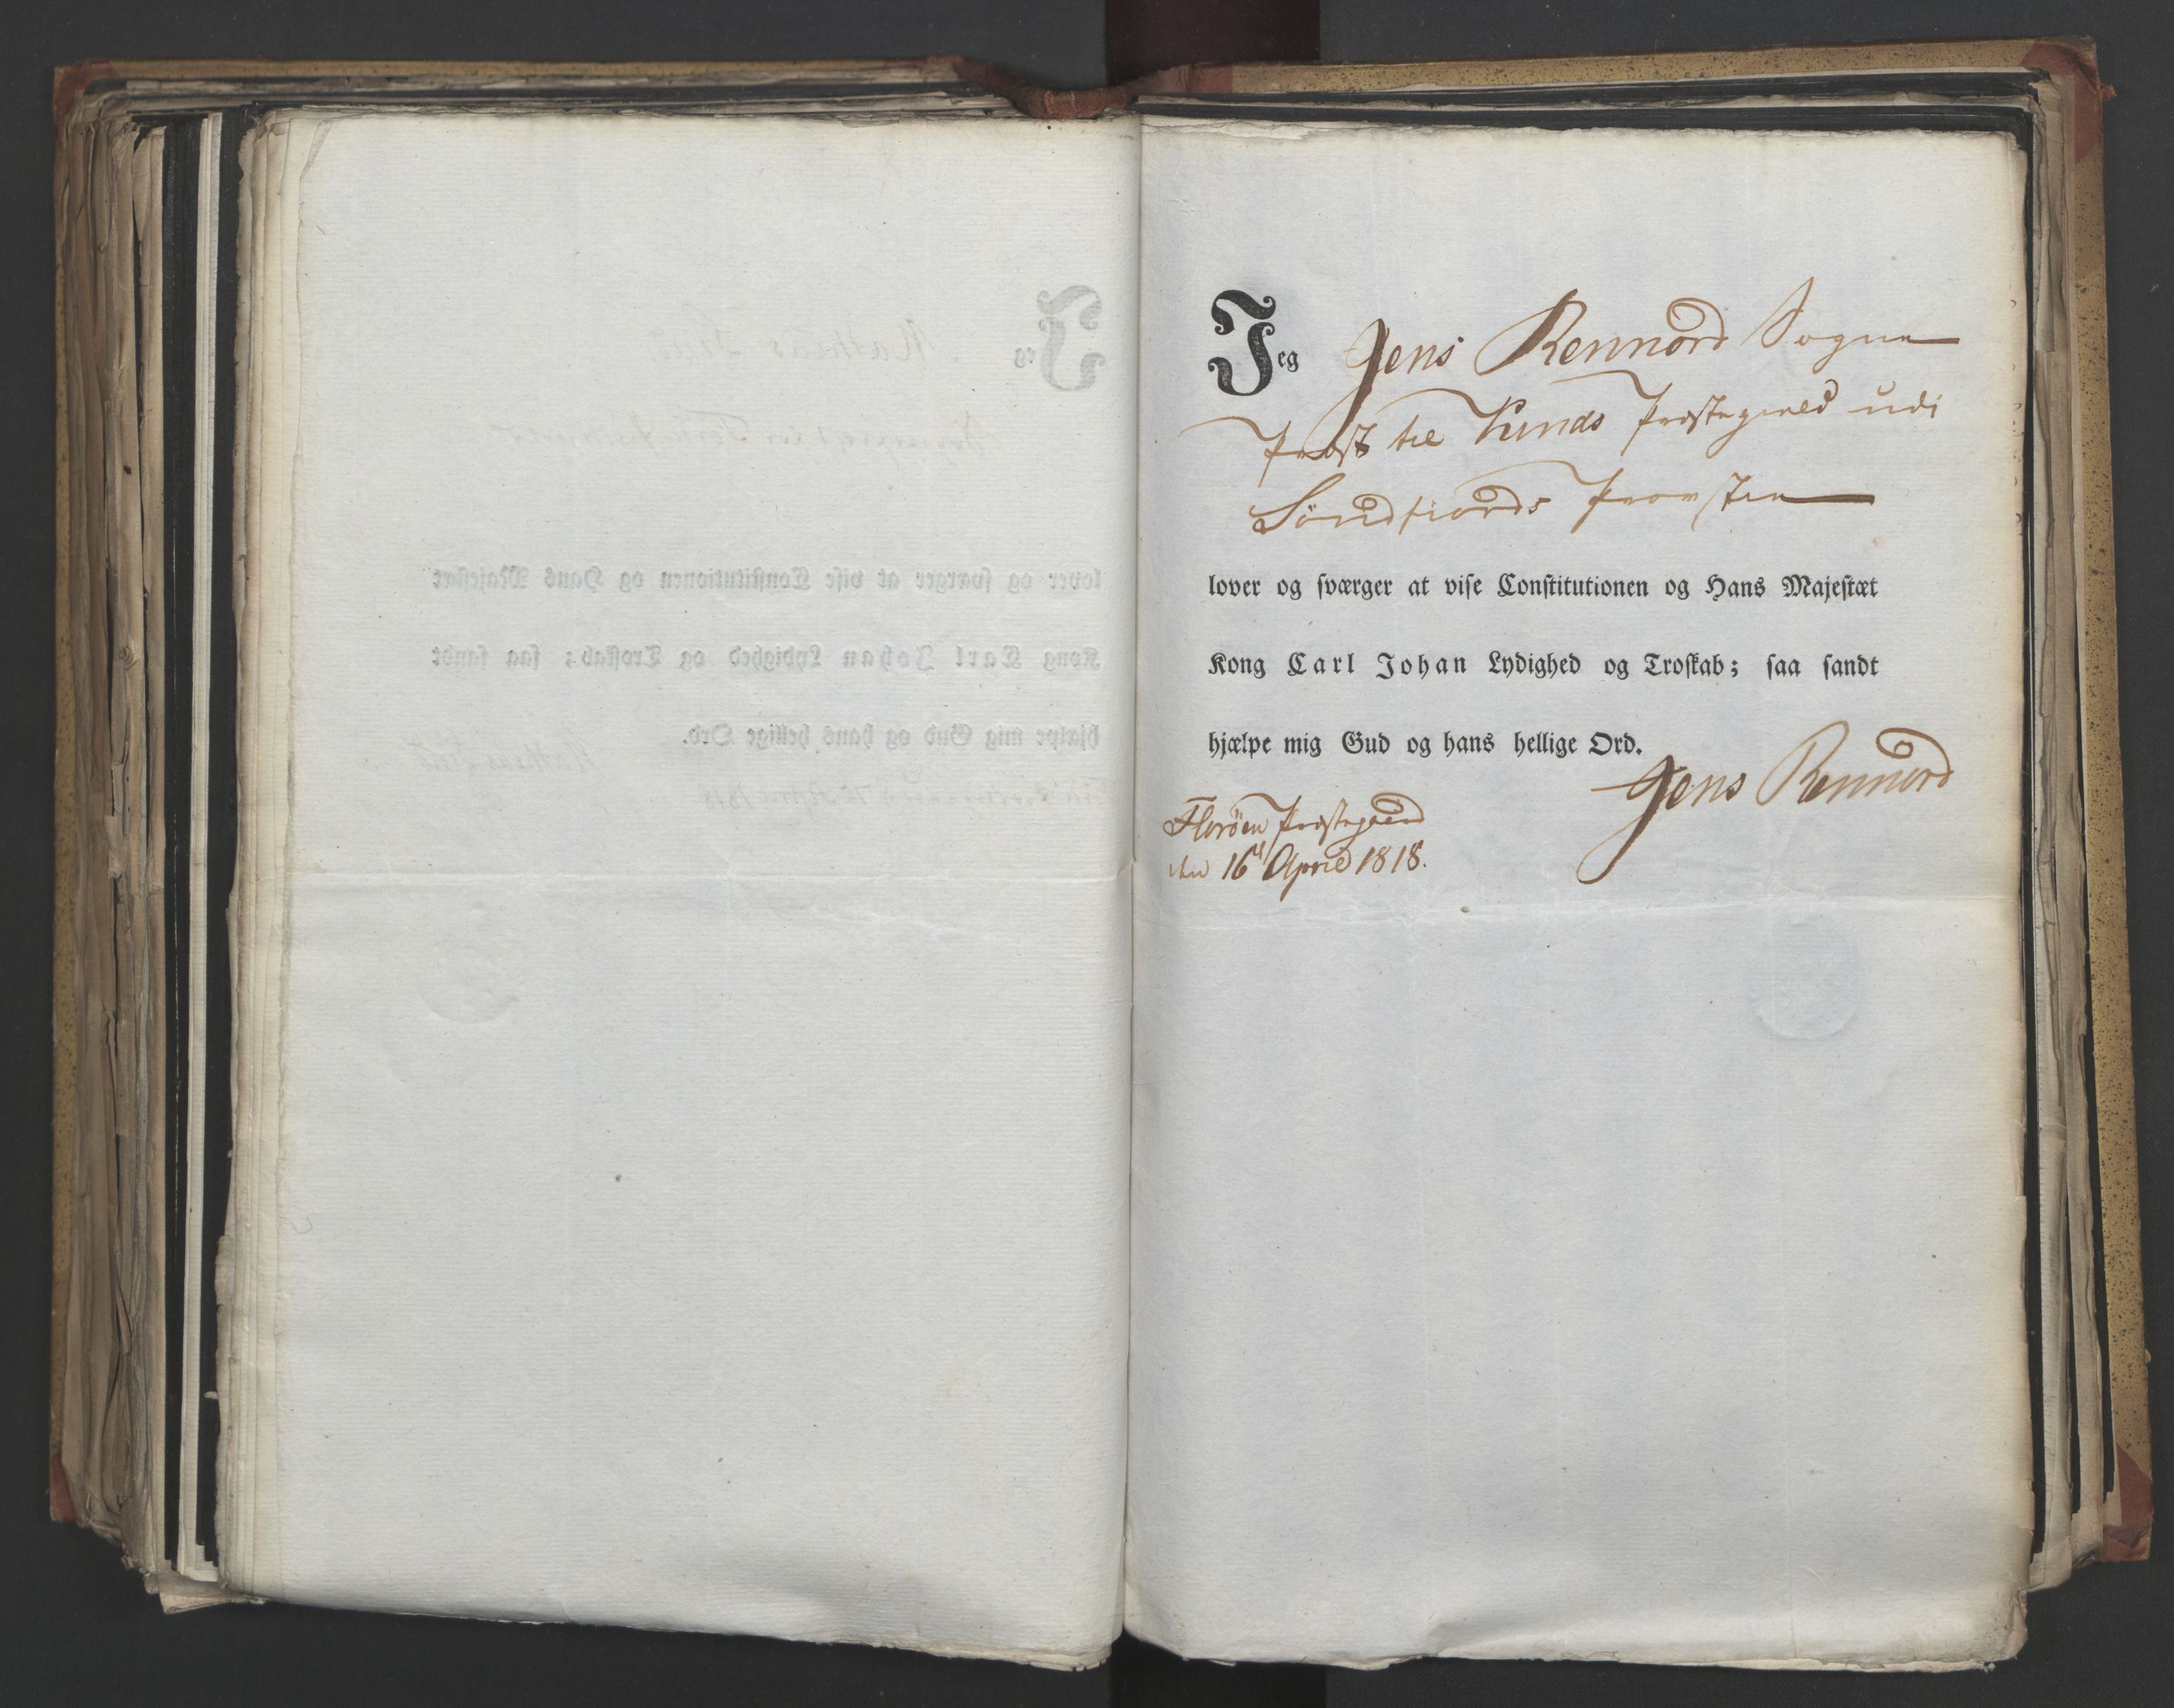 Jeg Jens Rennord Sogne
Præst til Kinds Præstegield udi
Søndfiords Provstie
lover og sværger at vise Constitutionen og Hans Majestæt
Kong Carl Johan Lydighed og Troskab; saa sandt
hjælpe mig Gud og hans hellige Ord.
Jens Rennord
Florøen Præstegaard
den 16d April 1818.